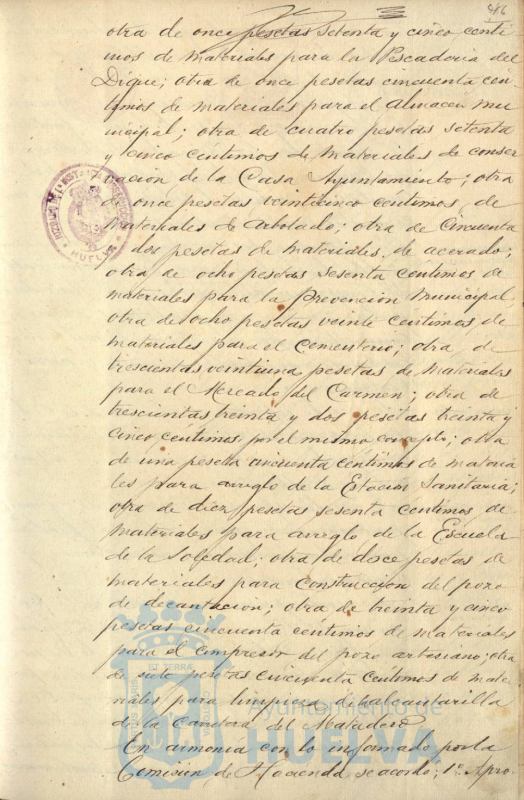 otra de once pesetas setenta y cinco centi
mos de materiales para la Pescaderia del
Dique; otra de once pesetas cincuenta cen-
timos de materiales para el Almacen mu
nicipal; otra de cuatro pesetas setenta
y cinco centimos de materiales de conser
vacion de la Casa Ayuntamiento; otra
de once pesetas veinticinco centimos de
materiales de Arbolado; otra de cincuenta
y dos pesetas de materiales de acerado;
otra de ocho pesetas sesenta centimos de
materiales para la Prevencion Municipal,
otra de ocho pesetas veinte centimos de
materiales para el cementerio; otra de
trescientas veintiuna pesetas de materiales
para el Mercado del Carmen; otra de
trescientas treinta y dos pesetas treinta y
cinco centimos por el mismo concepto; otra
de una peseta cincuenta centimos de materia
les para arreglo de la Estacion Sanitaria;
otra de diez pesetas sesenta centimos de
materiales para arreglo de la Escuela
de la Soledad; otra de doce pesetas de
materiales para construccion del pozo
de decantacion; otra de treinta y cinco
pesetas cincuenta centimos de materiales
para el compresor del pozo artesiano; otra
de siete pesetas cincuenta centimos de mate
riales para limpieza del alcantarilla
de la Carretera del Matadero
En armonia con lo informado por la
Comision de Hacienda se acordó; 1º Apro-
HUELVA
ET TERRÆ
Ayuntamiento de
HUELVA